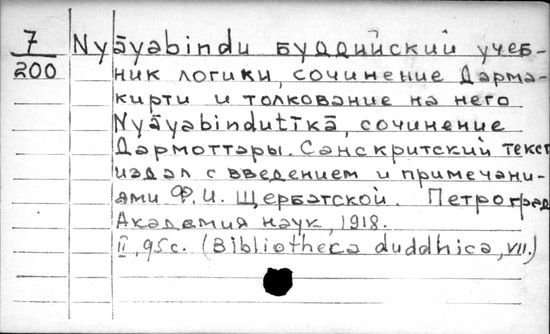 7 Nyāyabindu буддийский учеб-
200 ник логики, сочинение Дарма-
кирти и толкование на него
Nyāyabindutīkā, сочинение
Дармоттары. Санскритский текст
издал с введением и примечани-
ями Ф.И. Щербатской. Петроград
Академия наук, 1918.
II, 95с. (Bibliotheca duddhica, VII.)